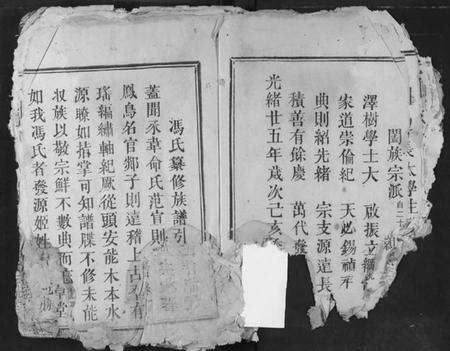 闔族宗派自二十
澤樹學士大 啟振立
家道崇倫紀 天必錫禎
典則紹先緒 宗支源遠長
積善有餘慶 萬代
光緒廿五年歲次己亥
馮氏纂修族譜引
蓋聞承韋命氏范宣則
鳳鳥名官郯子則遠稽上古
瑤編繡軸紀厥從頭安能木本水
源瞭如指掌可知譜牒不修未能
收族以敬宗鮮不數典而忘
如我馮氏者發源姬姓